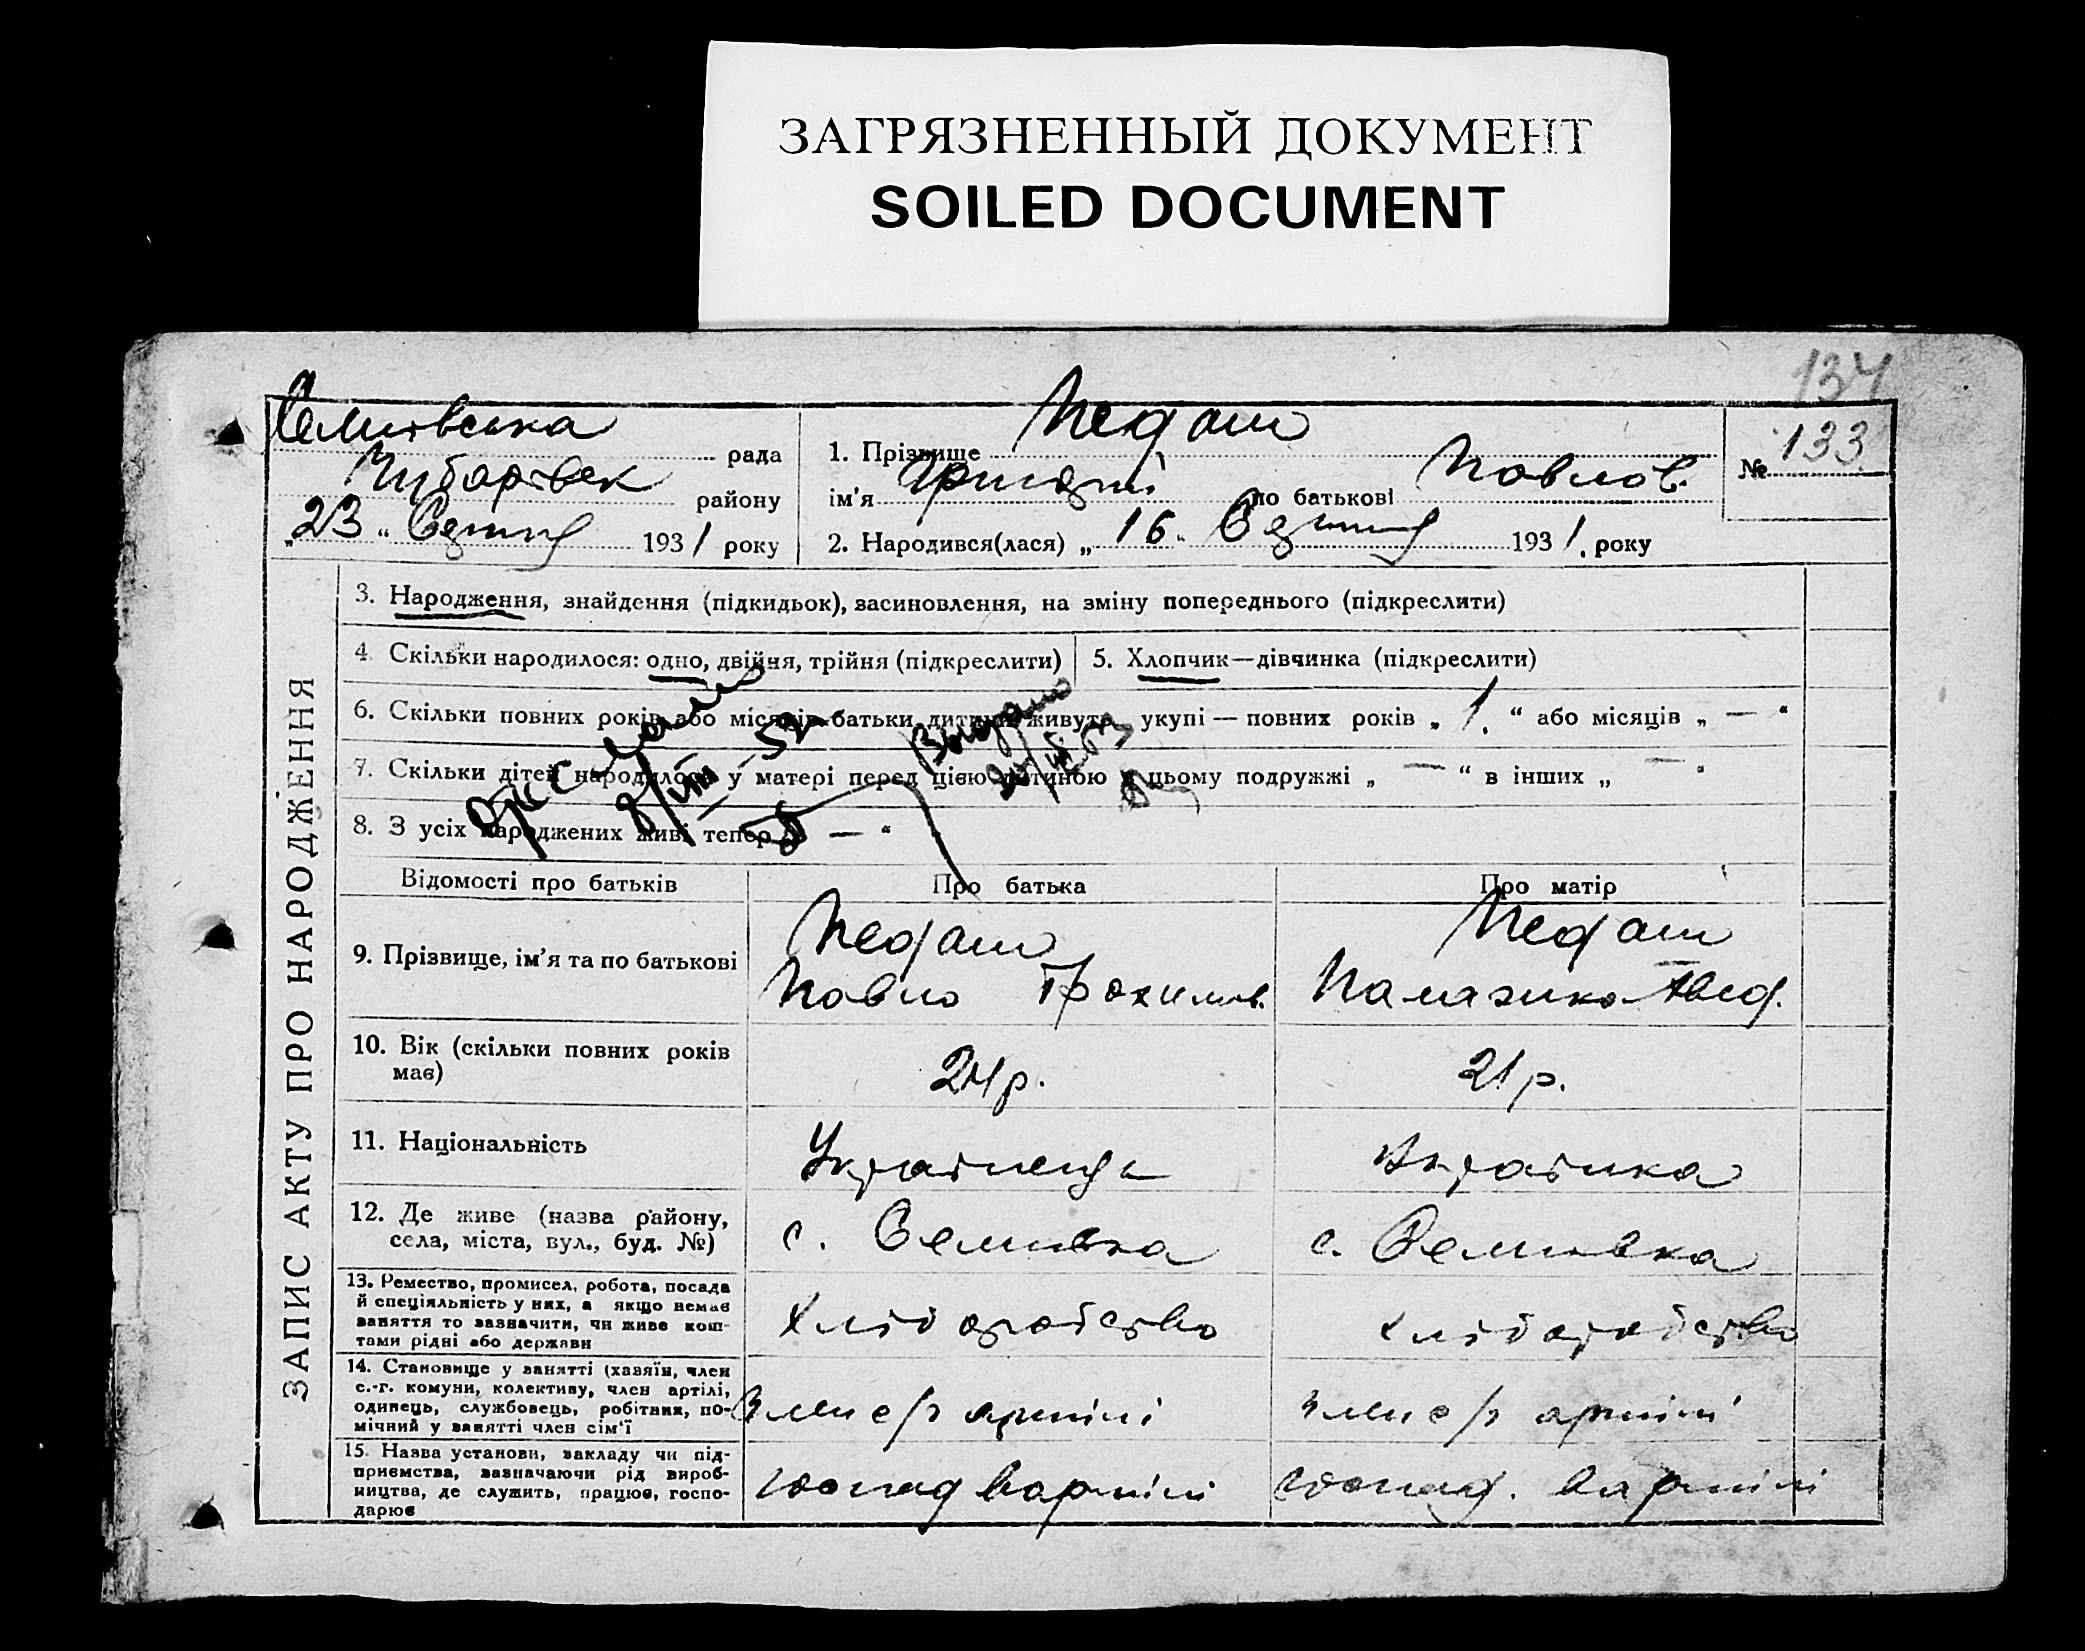 ЗАГРЯЗНЕННЫЙ ДОКУМЕНТ
SOILED DOCUMENT
134
Семитвська рада
Чубарівськ району
„23“ Серпня 1931 року
1. Прізвище Педаш
ім'я Григорій по батькові Павлов.
2. Народився(лася) „16“ Серпня 1931 року
№ 133
ЗАПИС АКТУ ПРО НАРОДЖЕННЯ
3. Народження, знайдення (підкидьок), засиновлення, на зміну попереднього (підкреслити)
4. Скільки народилося: одно, двійня, трійня (підкреслити)
5. Хлопчик—дівчинка (підкреслити)
6. Скільки повних років або місяців батьки дитини живуть укупі — повних років „1.“ або місяців „—“
7. Скільки дітей народилося у матері перед цією дитиною в цьому подружжі „—“ в інших „—“
8. З усіх народжених живі тепер „—“
Выдано
Відомості про батьків
Про батька
Про матір
9. Прізвище, ім'я та по батькові
Педаш
Павло Трохимов.
Педаш
Палазика Авед.
10. Вік (скільки повних років має)
24 р.
21 р.
11. Національність
Українець
Українка
12. Де живе (назва району, села, міста, вул., буд. №)
с. Семивка
с. Семивка
13. Ремество, промисел, робота, посада й спеціяльність у них, а якщо немає заняття то зазначити, чи живе коштами рідні або держави
Хлібороб ство
хлібороб ство
14. Становище у занятті (хазяїн, член с.-г. комуни, колективу, член артілі, одинець, службовець, робітник, помічний у занятті член сім'ї
Член с/г артілі
член с/г артілі
15. Назва установи, закладу чи підприємства, зазначаючи рід виробництва, де служить, працює, господарює
господ в артілі
господ. в артілі